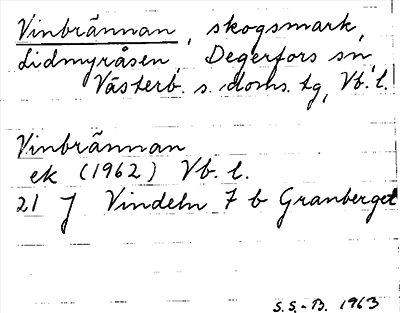 Vinbrännan, skogsmark,
Lidmyråsen, Degerfors sn,
Västerb. s. doms. tg, Vb. l.
Vinbrännan
ek (1962) Vb. l.
21 J Vindeln 7 b Granberget
S.S.-B. 1963